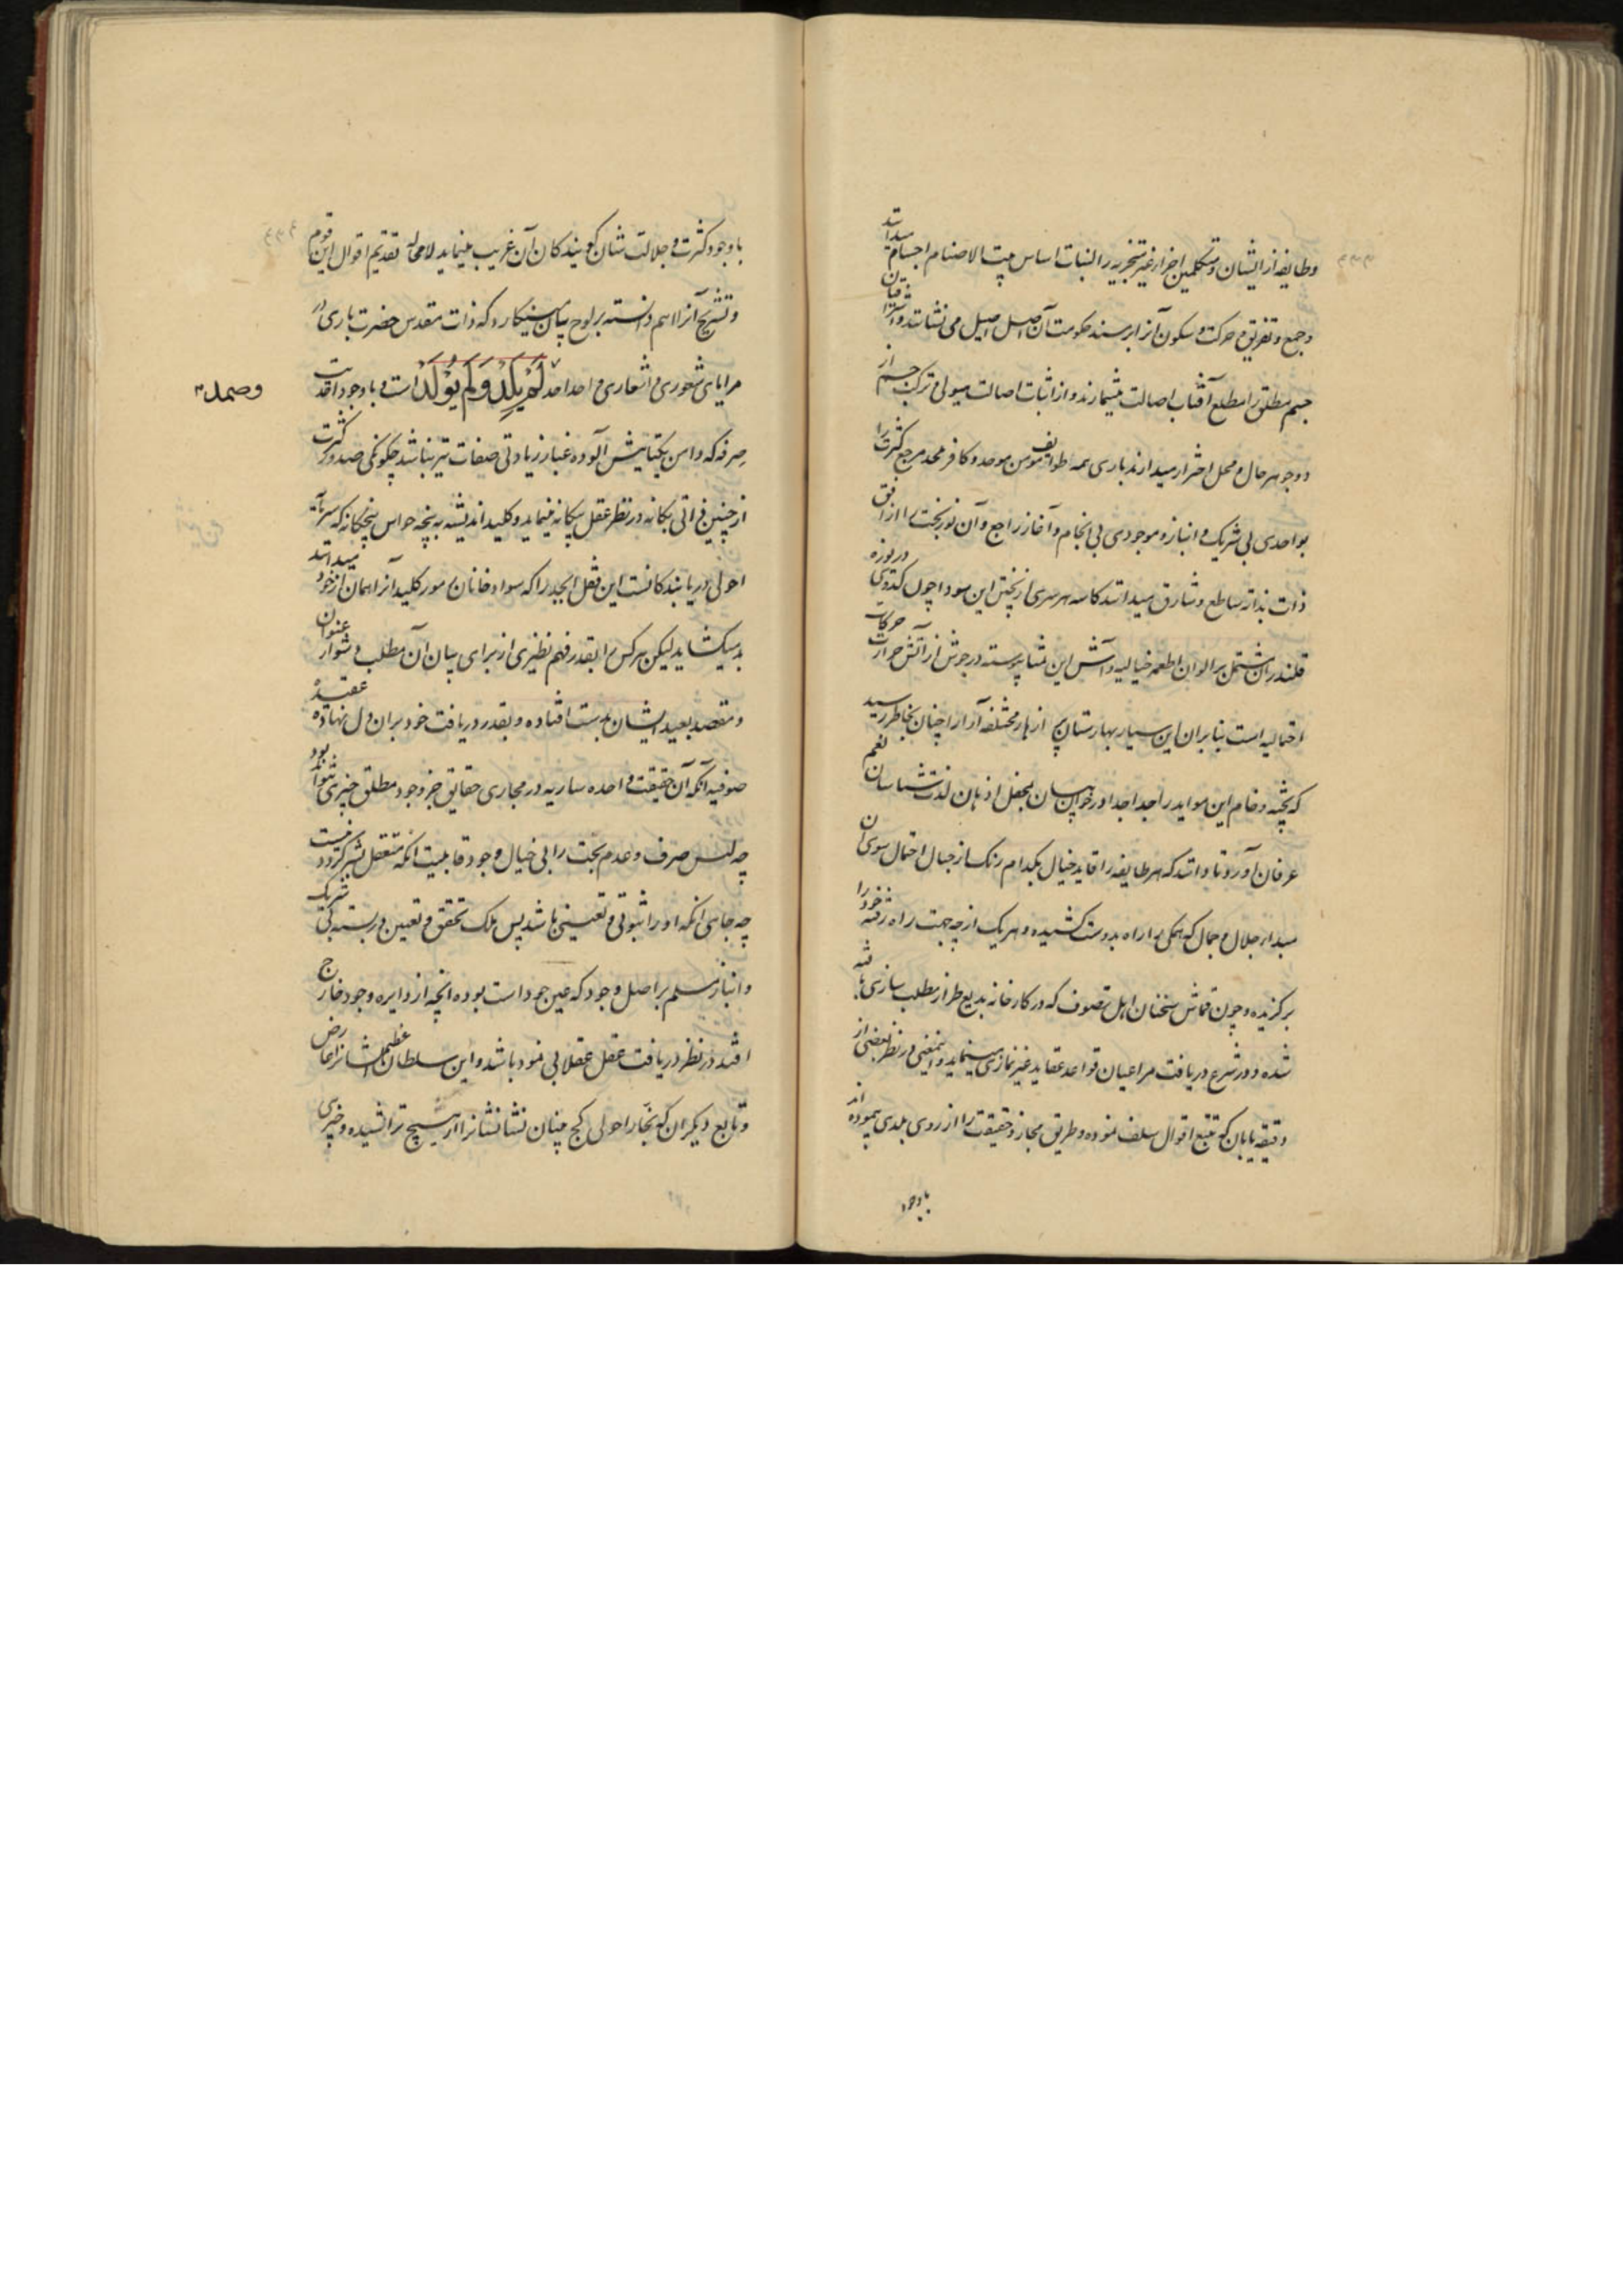 وطایفهٔ از ایشان و متکلمین اجزاء غیر متجزیه را لبنات اساس بیت الاصنام اجسام میدانند
و جمع و تفریق و حرکت و سکون آنرا بر مسند حکومت آن اصل اصیل می نشانند و اشراقیان
جسم مطلق را مطلع آفتاب اصالت میشمارند و از اثبات اصالت هیولی و ترکب جسم از
دو جوهر حال و محل احتراز میدارند باری همه طوایف مومن موحد و کافر ملحد مرجع کثرت را
بواحدی بی شریک و انباز و موجودی بی انجام و آغاز راجع و آن نور بحت را از افق
ذات بذاته ساطع و شارق میدانند کاسه هر سری از پختن این سودا چون کدوی دریوزه
قلندران مشتمل بر الوان اطعمه خیالیه و آش این تمنا پیوسته در جوش از آتش حرارت حرکات
احتمالیه است بنابران این سیار بهارستان ازهار مختلفه آرا را چنان بخاطر رسید
که پخته و خام این مواید را جدا جدا در خوان بیان بمحفل اذهان لذت شناسان نعم
عرفان آورد تا دانند که هر طایفه را قاید خیال بکدام رنگ از جبال احتمال سوی آن
مبداء جلال و جمال که همگی را راه بدوست کشیده و هر یک از چه جهت راه رفته خود را
برگزیده و چون قماش سخنان اهل تصوف که در کارخانه بدیع طراز مطلب سازی بافته
شده و در شرع دریافت مراعیان قواعد عقاید غیر نمازی مینماید و اینمعنی در نظر بعضی از
دقیقه یابان که تتبع اقوال سلف نموده و طریق مجاز و حقیقت را از روی بلدی پیموده اند
باوجود
با وجود کثرت و جلالت شان گویندگان آن غریب مینماید لامحاله تقدیم اقوال این قوم
و تشریح آنرا اهم دانسته بر لوح بیان مینگارد که ذات مقدس حضرت باری در
مرایای شعوری و اشعاری واحد احد لَمْ یَلِدْ وَلَمْ یُوْلَدْ است و با وجود احدیت
وصمد
صرفه که دامن یکتاییش آلوده غبار زیادتی صفات نیز نباشد چگونگی صدور کثرت
از چنین ذاتی یگانه در نظر عقل بیگانه مینماید و کلید اندیشه به پنجه حواس پنجگانه که سرمایهٔ
احولی دریابندگانست این قفل ابجد را که سواد خانان امور کلید آنرا همان از خود میدانند
بد میگشاید لیکن هر کس را بقدر فهم نظیری از برای بیان آن مطلب دشوار عنوان
و مقصد بعید ایشان بدست افتاده و بقدر دریافت خود بران دل نهاده عقیدهٔ
صوفیه آنکه آن حقیقت واحده ساریه در مجاری حقایق جز وجود مطلق چیزی نتواند بود
چه لیس صرف و عدم بحت را بی خیال وجود قابلیت آنکه متعقل بشر گردد نیست
چه جای آنکه او را ثبوتی و تعینی باشد پس ملک تحقق و تعین دربسته بی شریک
و انباز مسلم بر اصل وجود که عین جود است بوده آنچه از دایره وجود خارج
افتد در نظر دریافت عقل عقلا بی نمود باشد و این سلطان عظیم الشانرا عارض
و تابع دیگران که نجار احولی کج بینان نشانشانرا از هیچ تراشیده و چیزی